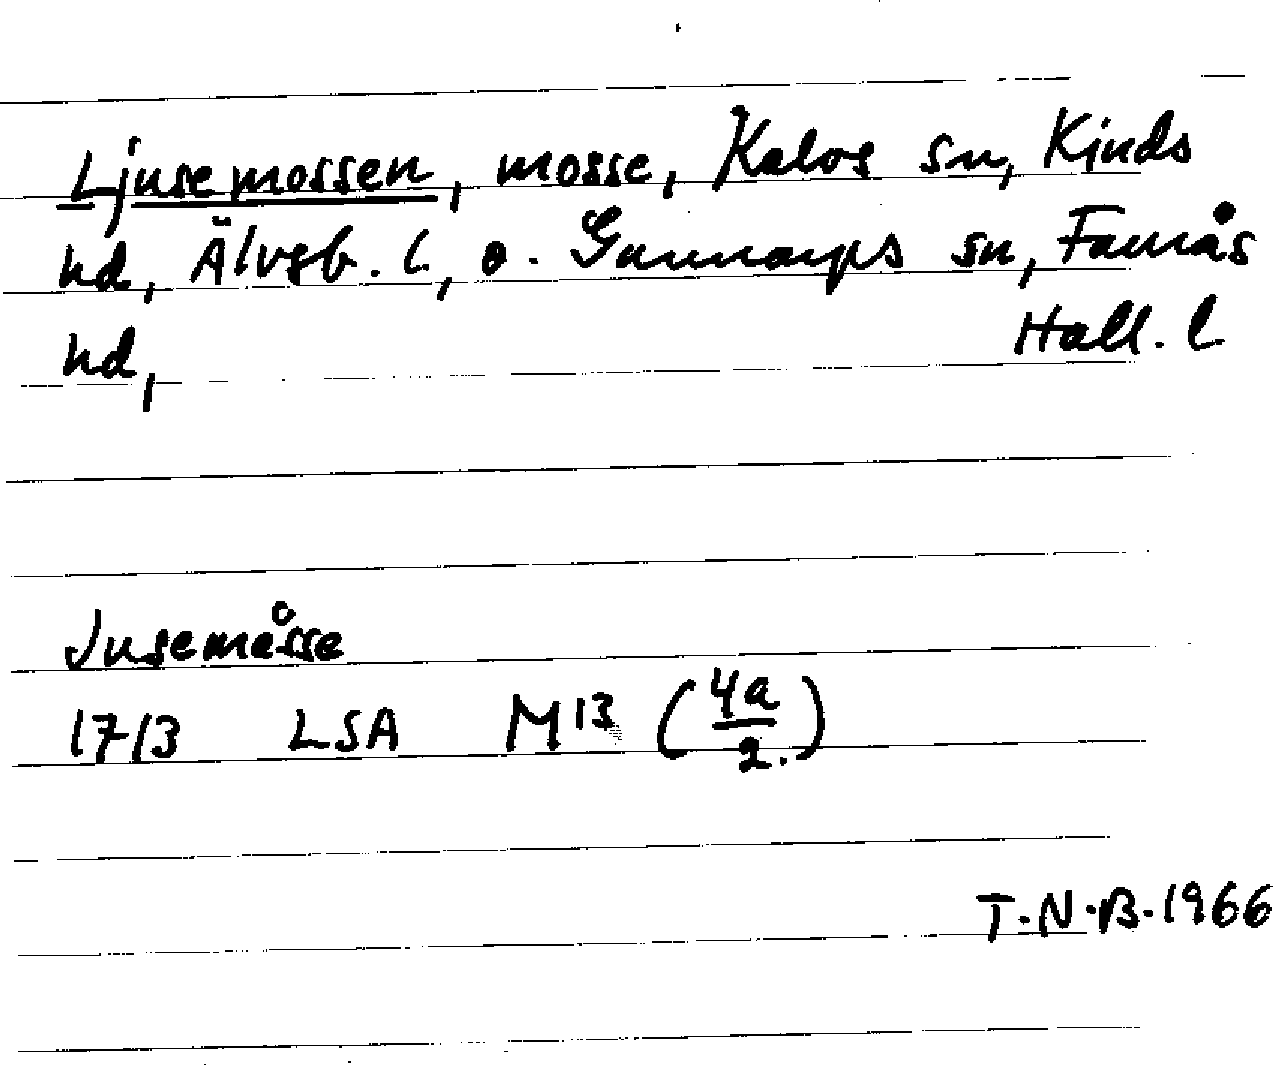 Ljusemossen, mosse, Kalvs sn, Kinds
hd, Älvsb. l., o. Gunnarps sn, Faurås
hd, Hall. l
Jusemåsse
17/3 LSA M13 (4a/2.)
T.N.B. 1966